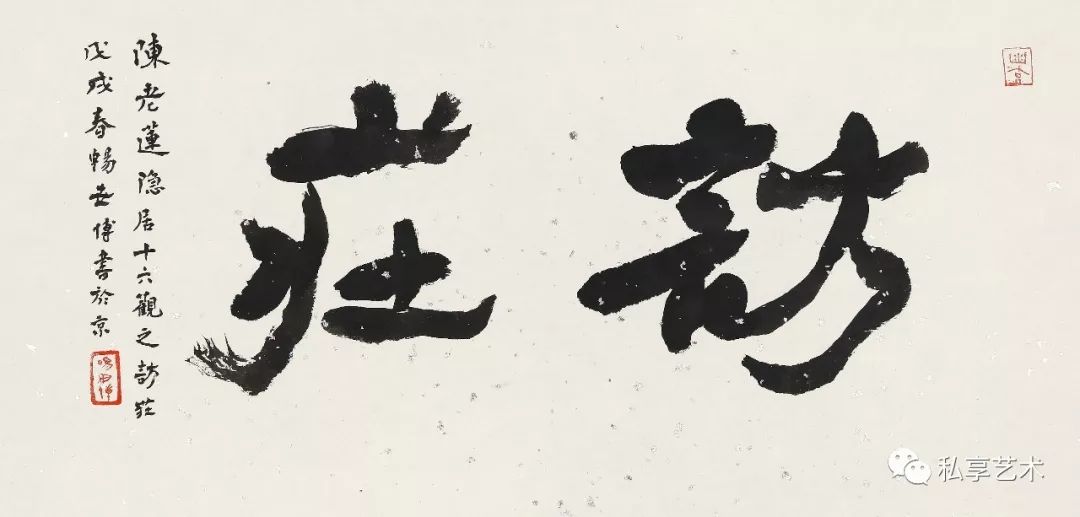 訪莊
陳老蓮隱居十六觀之訪莊
戊戌春暢世傅書於京
私享艺术